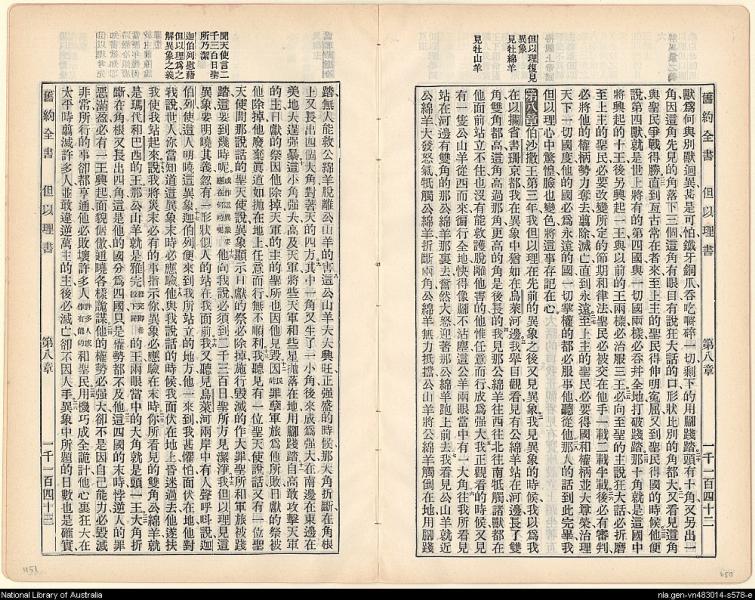 舊約全書 但以理書 第八章 一千一百四十二
獸爲何與別獸迥異甚是可怕鐵牙銅爪吞吃嚼碎一切剩下的用腳踐踏頭有十角又另出一
角因這角先見的角落下三個這角有眼目有說狂大話的口形狀比別的角都大又看見這角
與聖民爭戰得勝直到亘古常在者來至上主的聖民得伸明冤屈又到聖民得國的時候他便
說第四獸就是世上將有的第四國與一切國兩樣必吞并全地打破踐踏那十角就是這國中
將興起的十王後另興起一王與以前的王兩樣必治服三王必向至聖的主說狂大話必折磨
至上主的聖民必要改變所定的節期和律法聖民必被交在他手一載二載半載後必有審判
必將他的權柄勢力奪去翦除滅亡直到永遠至上主的聖民必要得國和權柄並大尊榮治理
天下一切國度他的國必爲永遠的國一切掌權的都必服事他聽從他那人的話到此完畢我
但以理心中驚惶臉也變色將這事存記在心
第八章伯沙撒王第三年我但以理在先前的異象之後又見異象我見異象的時候我以爲我
在以攔省書珊京都我在異象中猶如在烏萊河邊我舉目觀看見有公綿羊站在河邊長了雙
角雙角都高這角高過那角更高的角是後長的我見那公綿羊往西往北往南牴觸諸獸都在
他面前站立不住也沒有能救護脫離他害的他惟任意而行成爲強大我正觀看的時候又見
有一隻公山羊從西而來徧行全地快得像腳不沾塵這公山羊兩眼當中有一大角往我所看見
站在河邊有雙角的那公綿羊那裏去奮然大怒迎著那公綿羊跑上前去我看見公山羊就近
公綿羊大發怒氣牴觸公綿羊折斷兩角公綿羊無力抵擋公山羊將公綿羊觸倒在地用腳踐
但以理復見
異象
見牡綿羊
見牡山羊
舊約全書 但以理書 第八章 一千一百四十三
踏無人能救公綿羊脫離公山羊的害這公山羊大大興旺正强盛的時候那大角折斷在角根
上又長出四個大角對著天的四方其中一角又生了一小角後來成爲强大在南邊在東邊在
美地大逞强暴這小角强大高及天軍將些天軍和些星拋落在地用腳踐踏自高敢攻擊天軍
的主日獻的祭因他除掉天軍的主的聖所也因他見毀因民罪孽軍旅爲他所敗日獻的祭被
他除掉他廢棄眞道如拋在地上任意而行無不順利我聽見有一位聖天使說話又有一位聖
天使問那說話的聖天使說異象顯示日獻的祭必除掉施行毀滅的作大罪聖所和軍旅被踐
踏這要到幾時呢他向我說必到二千三百日聖所方見潔淨我但以理見這
異象要明曉其義忽有一形狀似人的站在我面前我又聽見烏萊河兩岸中有人聲呼叫說迦
伯列使這人明曉這異象迦伯列便來到我所站立的地方他一來到我甚懼怕面伏在地他對
我說世人你當知道這異象末時必應驗他與我說話的時候我面伏在地上昏迷過去他遂扶
我使我站起來說我將災末必有的事指示你異象必應驗在末時你所看見的雙角公綿羊就
是瑪代和巴西的王那公山羊就是雅完的王兩眼當中的大角就是頭一王大角折
斷在角根又長出四角這是他的國分爲四國只是權勢都不及他這四國的末時悖逆人的罪
惡滿盈必有一王興起面貌倨傲通曉各樣詭謀他的權勢必强大卻不是因自己能力必毀滅
非常所行的事卻都亨通他必敗壞許多人和聖民用機巧成全詭計他心裏狂大在
太平時翦滅許多人並敢違逆萬主的主後必滅亡卻不因人手異象中所題的日數也是確實
聞天使言二
千三百日聖
所乃潔
迦伯列慰藉
但以理爲之
解異象之義
National Library of Australia
nla.gen-vn483014-s578-e